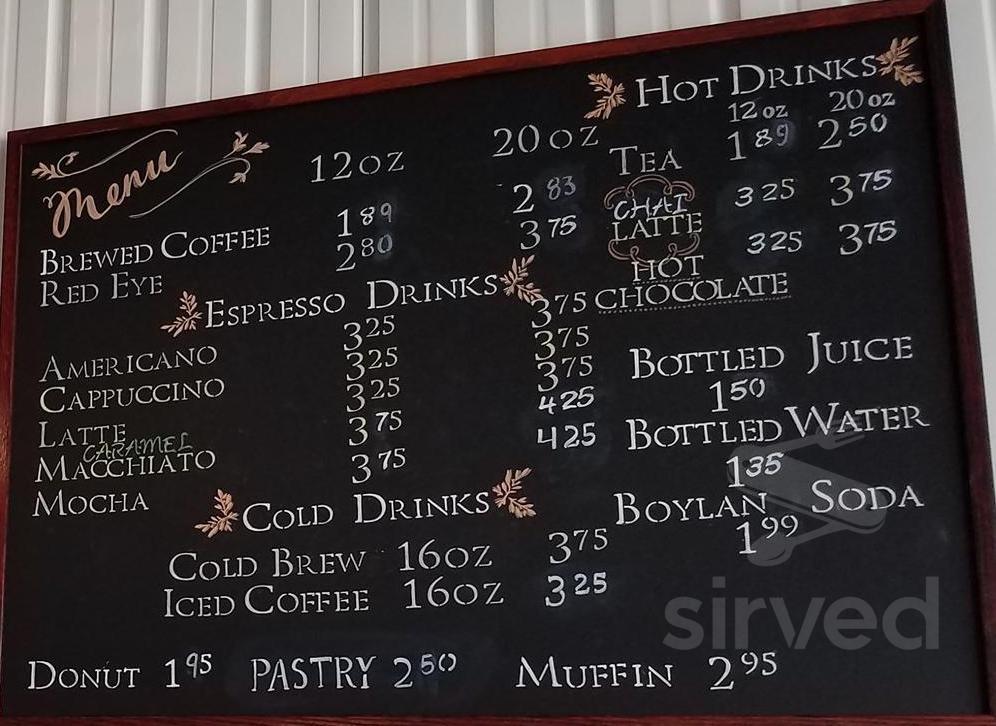 Menu
12 OZ 20 OZ
BREWED COFFEE 1 89 2 83
RED EYE 2 80 3 75
ESPRESSO DRINKS
AMERICANO 3 25 3 75
CAPPUCCINO 3 25 3 75
LATTE 3 25 3 75
CARAMEL
MACCHIATO 3 75 4 25
MOCHA 3 75 4 25
COLD DRINKS
COLD BREW 16OZ 3 75
ICED COFFEE 16OZ 3 25
HOT DRINKS
12 OZ 20 OZ
TEA 1 89 2 50
CHAI
LATTE 3 25 3 75
HOT
CHOCOLATE 3 25 3 75
BOTTLED JUICE
1 50
BOTTLED WATER
1 35
BOYLAN SODA
1 99
DONUT 1 95 PASTRY 2 50 MUFFIN 2 95
sirved